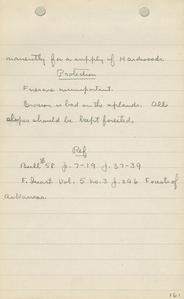 manently for a supply of Hardwoods
Protection
Fires are unimportant.
Erosion is bad on the uplands. All
slopes should be kept forested.
Ref
Bull # 58 p. 7-19 p. 37-39
F. Quart. Vol. 5 no. 3 p. 296 Forests of
Arkansas
161